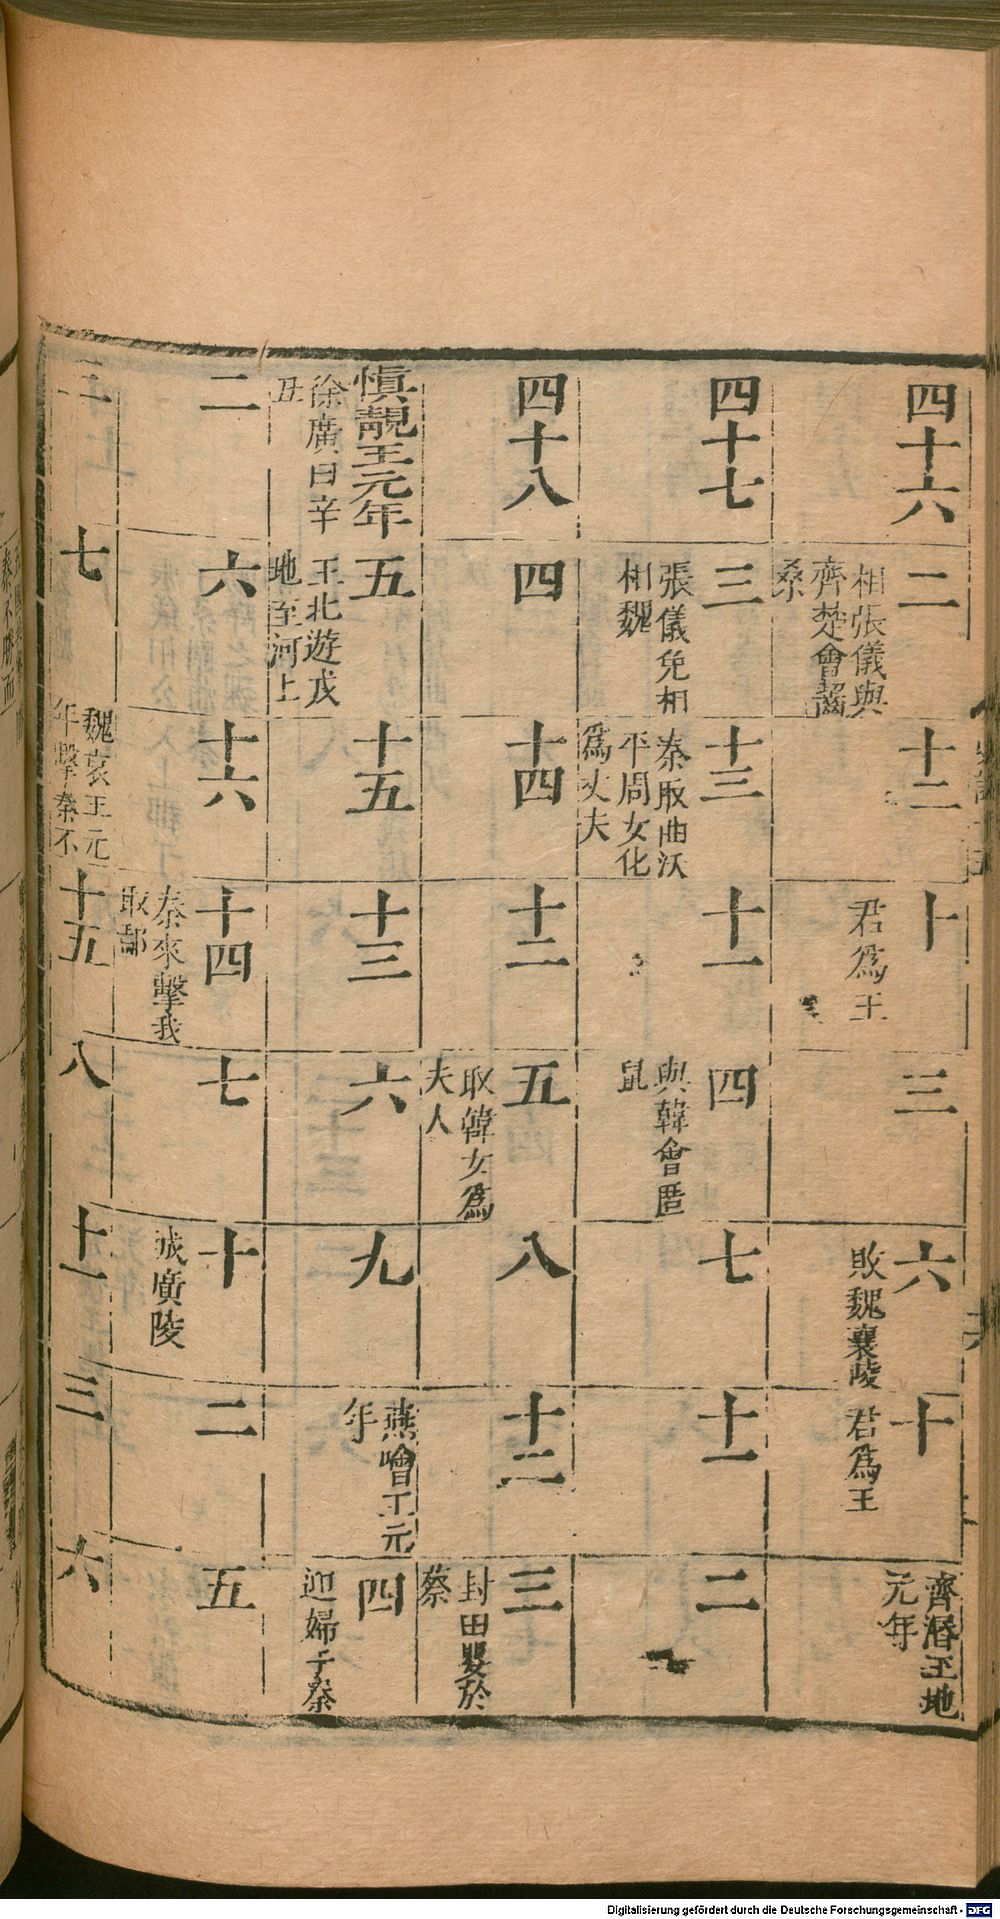 四十六
二
相張儀與
齊楚會齧
桑
十二
十
君爲王
三
六
敗魏襄陵
十
君爲王
齊湣王地
元年
四十七
三
張儀免相
相魏
十三
秦取曲沃
平周女化
爲丈夫
十一
四
與韓會區
鼠
七
十一
二
四十八
四
十四
十二
五
取韓女爲
夫人
八
十二
三
封田嬰於
蔡
慎靚王元年
徐廣曰辛
丑
五
王北遊戎
地至河上
十五
十三
六
九
燕噲王元
年
四
迎婦于秦
二
六
十六
十四
秦來擊我
取鄢
七
十
城廣陵
二
五
三
七
魏哀王元
年擊秦不
十五
八
十一
三
六
Digitalisierung gefördert durch die Deutsche Forschungsgemeinschaft - DFG